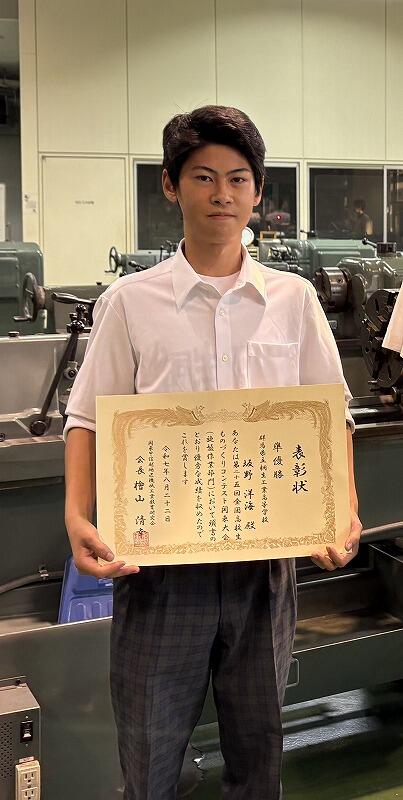 表彰状
準優勝
群馬県立桐生工業高等学校
坂野 洋海 殿
あなたは第二十五回全国高校生
ものづくりコンテスト関東大会
「旋盤作業部門」において頭書の
とおり優秀な成績を収めたので
これを賞します
令和七年八月二十二日
関東甲信越地区機械工業教育研究会
会長 檜山